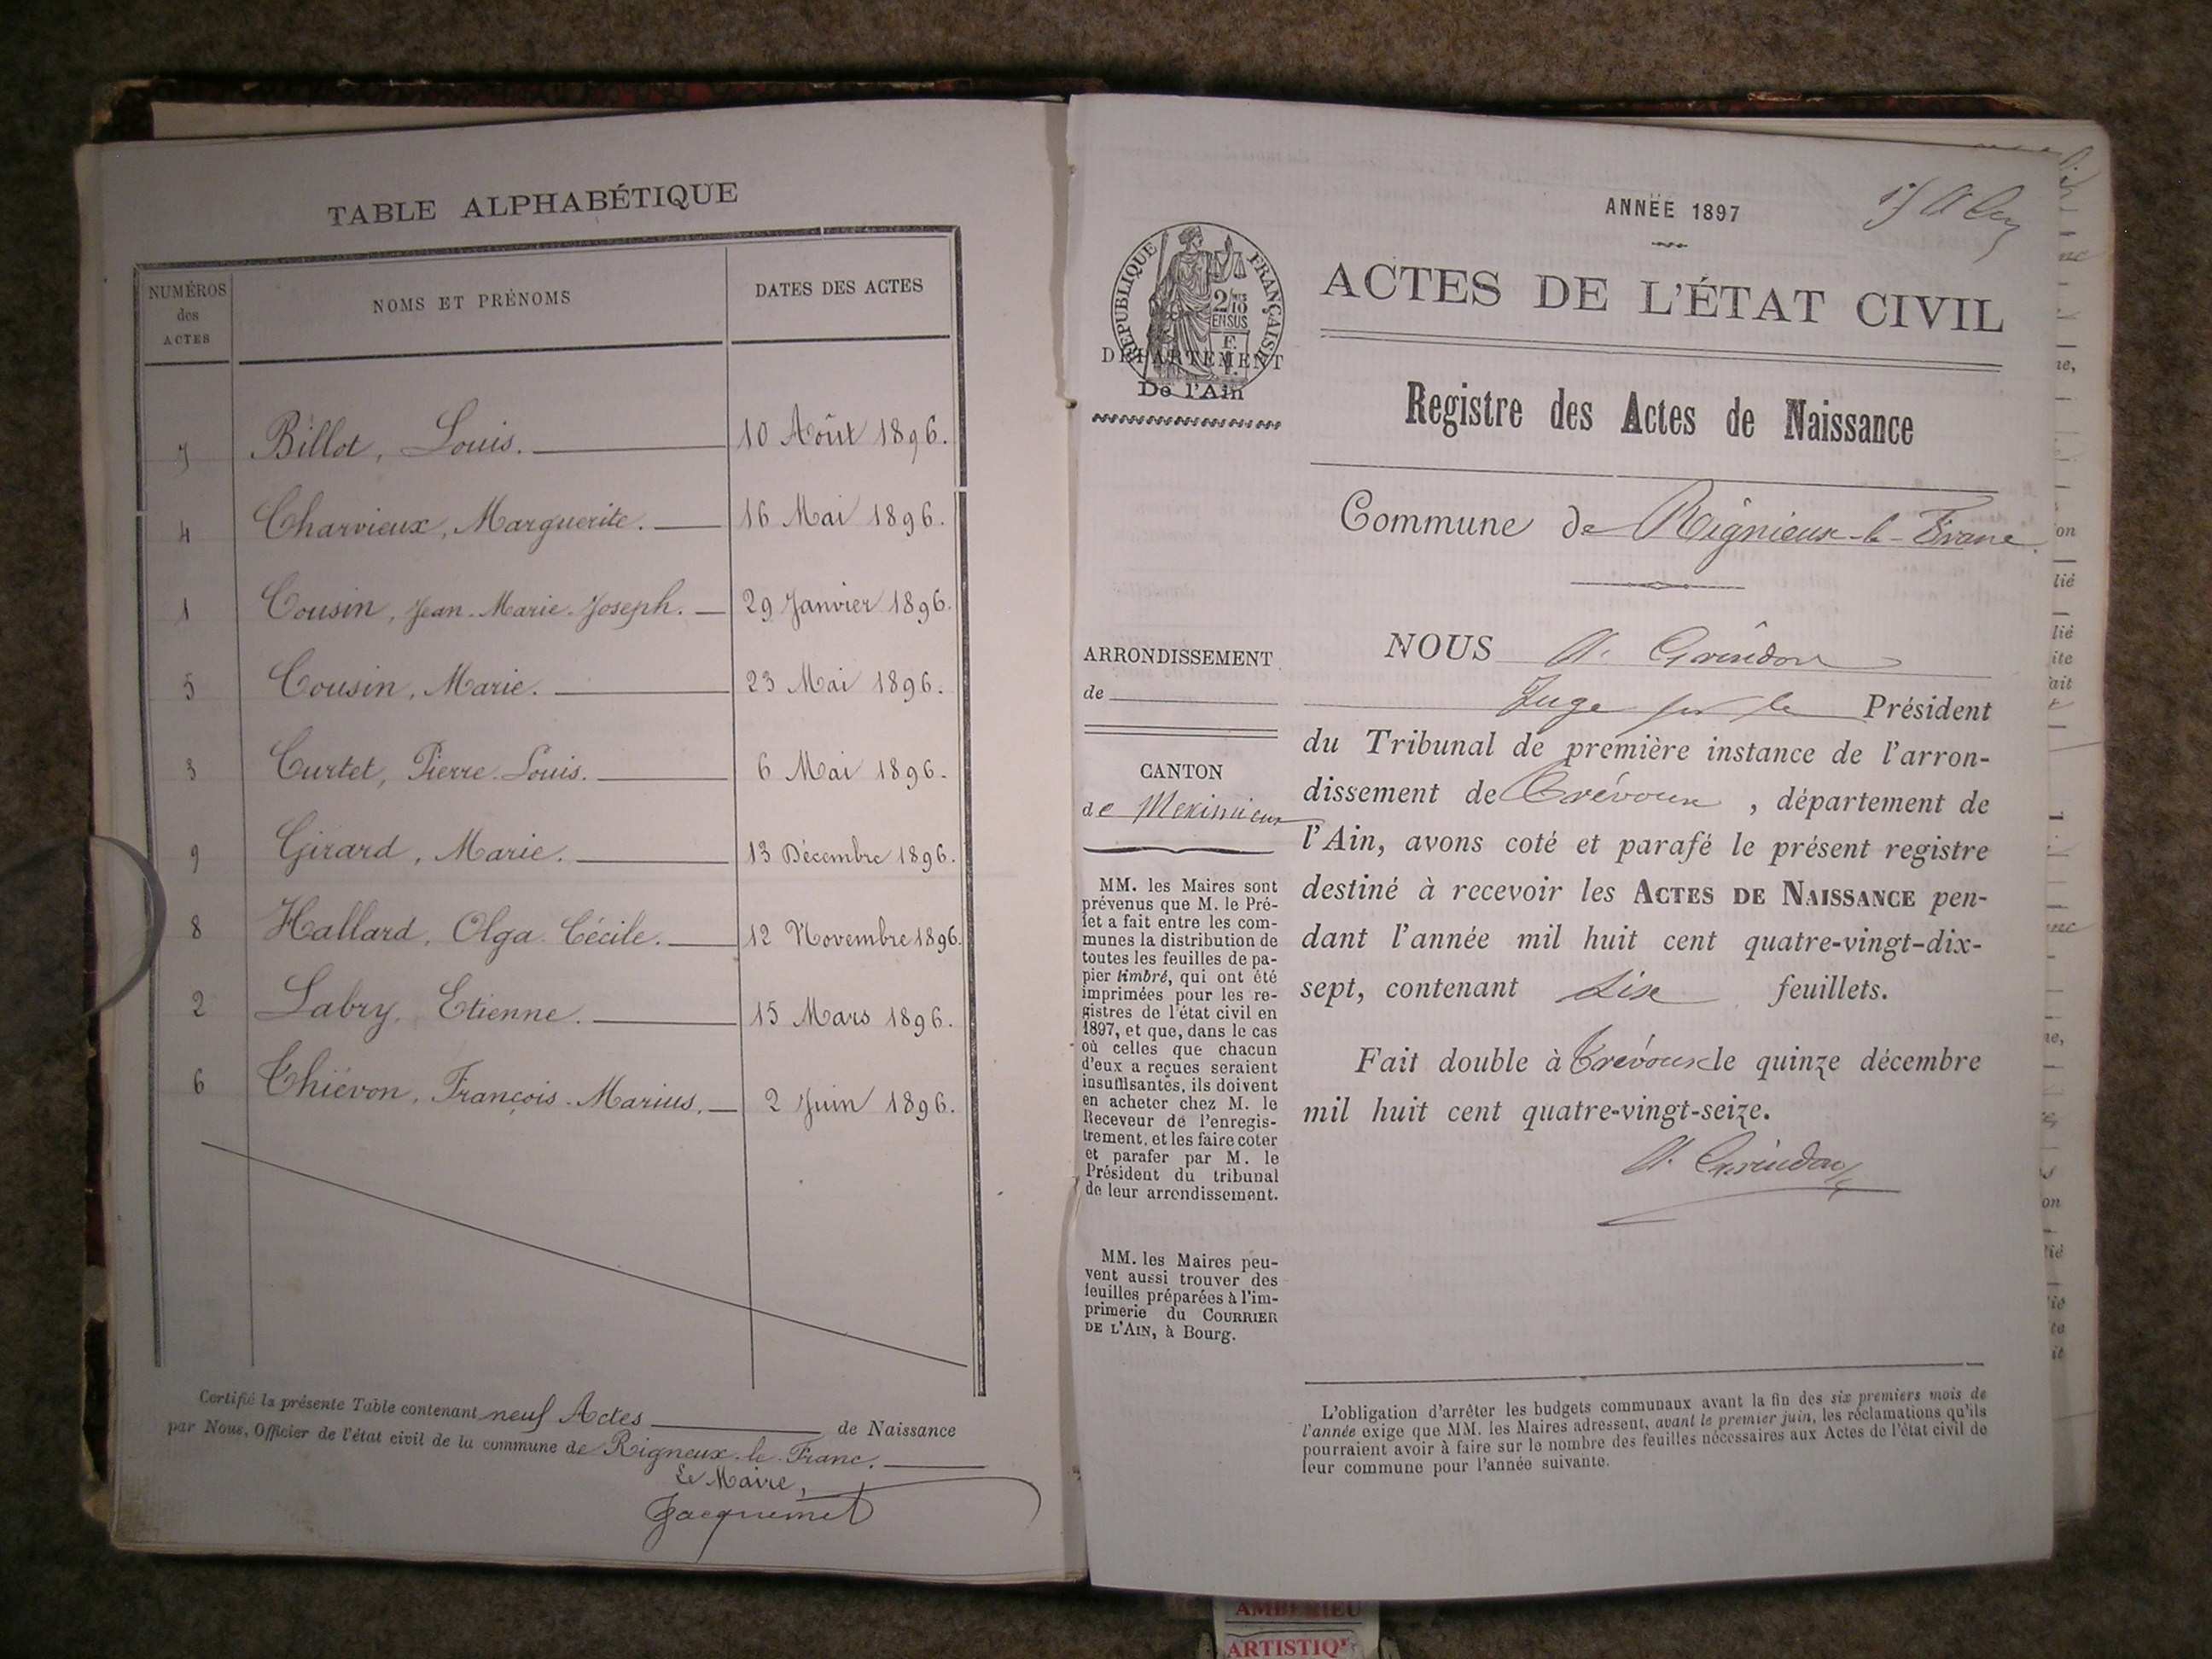 TABLE ALPHABÉTIQUE
NUMÉROS
des
ACTES
NOMS ET PRÉNOMS
DATES DES ACTES
7 Billot, Louis. 10 Août 1896.
4 Charvieux, Marguerite. 16 Mai 1896.
1 Cousin, Jean-Marie-Joseph. 29 Janvier 1896.
5 Cousin, Marie. 23 Mai 1896.
3 Curtet, Pierre-Louis. 6 Mai 1896.
9 Girard, Marie. 13 Décembre 1896.
8 Hallard, Olga-Cécile. 12 Novembre 1896.
2 Labry, Etienne. 15 Mars 1896.
6 Thiévon, François-Marius. 2 Juin 1896.
Certifié la présente Table contenant neuf Actes de Naissance
par Nous, Officier de l'état civil de la commune de Rigneux-le-Franc.
Le Maire,
Jacquemet
ANNËE 1897
ACTES DE L'ÉTAT CIVIL
RÉPUBLIQUE FRANÇAISE
DÉPARTEMENT
De l'Ain
Registre des Actes de Naissance
Commune de Rignieux-le-Franc
ARRONDISSEMENT
de
CANTON
de Meximieux
MM. les Maires sont
prévenus que M. le Pré-
fet a fait entre les com-
munes la distribution de
toutes les feuilles de pa-
pier timbré, qui ont été
imprimées pour les re-
gistres de l'état civil en
1897, et que, dans le cas
où celles que chacun
d'eux a reçues seraient
insuffisantes, ils doivent
en acheter chez M. le
Receveur de l'enregis-
trement, et les faire coter
et parafer par M. le
Président du tribunal
de leur arrondissement.
MM. les Maires peu-
vent aussi trouver des
feuilles préparées à l'im-
primerie du COURRIER
DE L'AIN, à Bourg.
NOUS A. Grindon
Juge pr le Président
du Tribunal de première instance de l'arron-
dissement de Trévoux, département de
l'Ain, avons coté et parafé le présent registre
destiné à recevoir les ACTES DE NAISSANCE pen-
dant l'année mil huit cent quatre-vingt-dix-
sept, contenant six feuillets.
Fait double à Trévoux le quinze décembre
mil huit cent quatre-vingt-seize.
A. Grindon
L'obligation d'arrêter les budgets communaux avant la fin des six premiers mois de
l'année exige que MM. les Maires adressent, avant le premier juin, les réclamations qu'ils
pourraient avoir à faire sur le nombre des feuilles nécessaires aux Actes de l'état civil de
leur commune pour l'année suivante.
AMBERIEU
ARTISTIQ